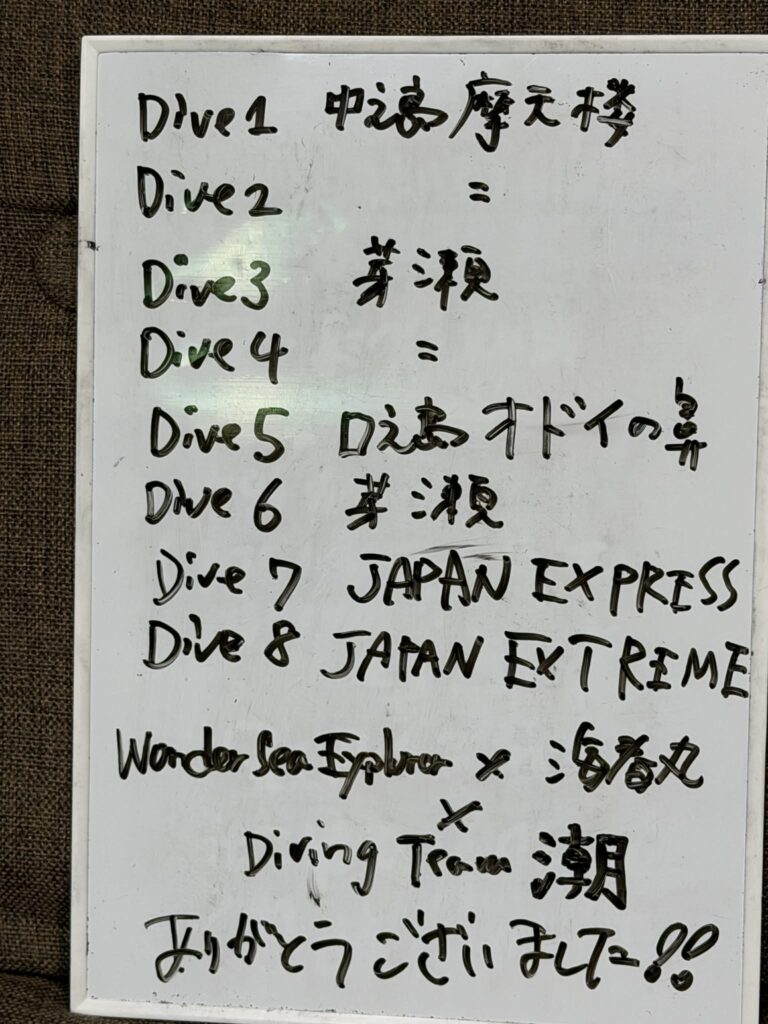 Dive1 中之島 摩天楼
Dive2 =
Dive3 芽瀬
Dive4 =
Dive5 口之島 オドイの鼻
Dive 6 芽瀬
Dive 7 JAPAN EXPRESS
Dive 8 JAPAN EXTREME
Wonder Sea Explorer × 海春丸
×
Diving Team 潮
ありがとうございました!!